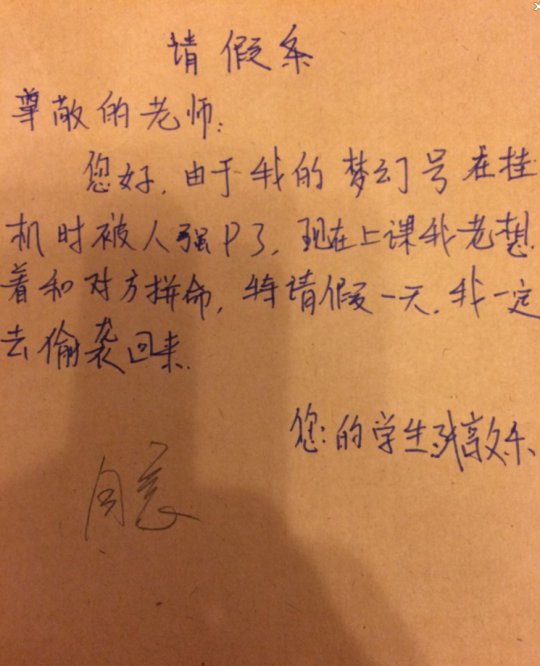 请假条
尊敬的老师:
您好,由于我的梦幻号在挂
机时被人强P了,现在上课我老想
着和对方拼命,特请假一天,我一定
去偷袭回来.
您的学生